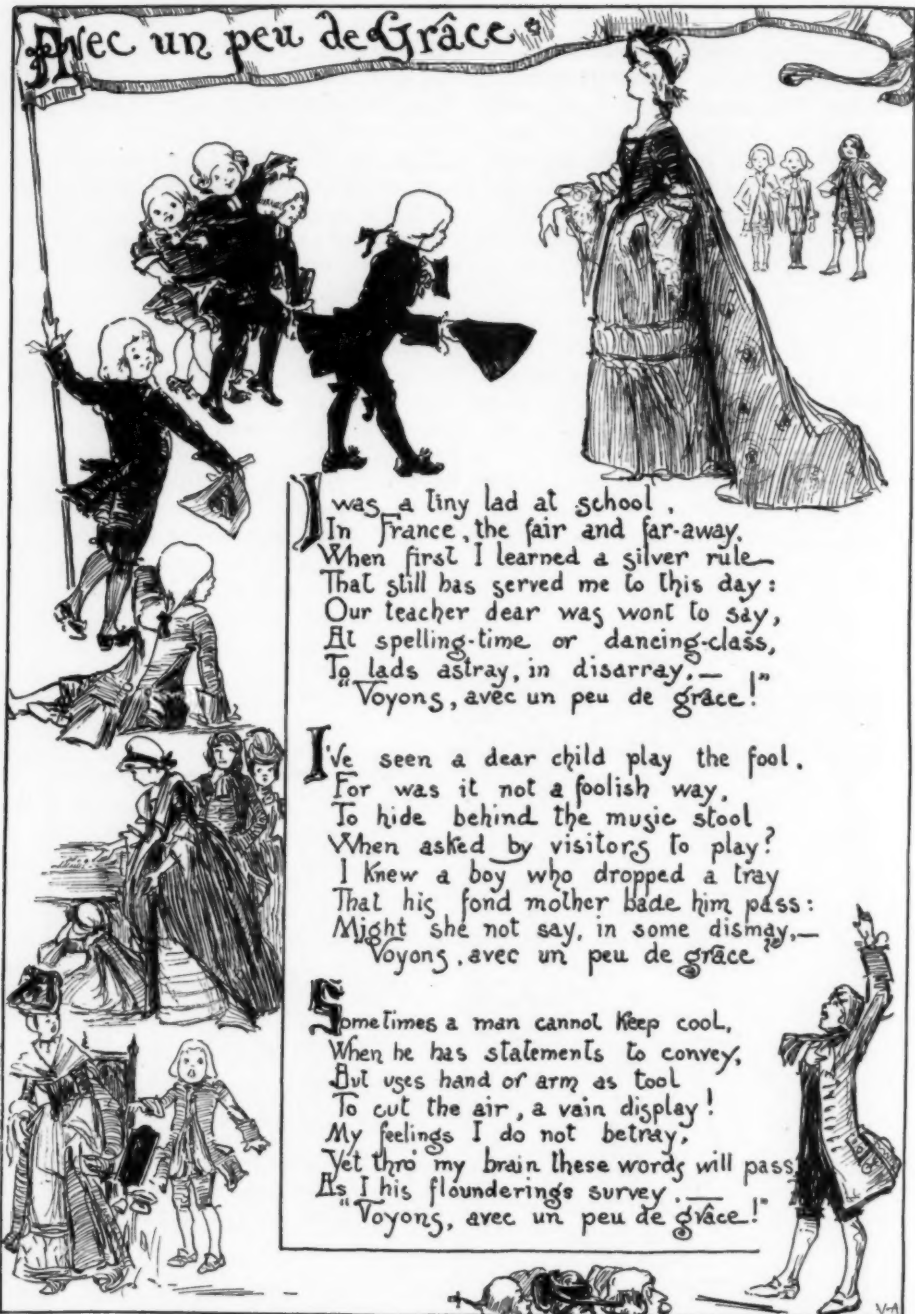 Avec un peu de Grâce
I was a tiny lad at school,
In France, the fair and far-away,
When first I learned a silver rule
That still has served me to this day:
Our teacher dear was wont to say,
At spelling-time or dancing-class,
To lads astray, in disarray,—
"Voyons, avec un peu de grâce!"
I've seen a dear child play the fool,
For was it not a foolish way,
To hide behind the music stool
When asked by visitors to play?
I knew a boy who dropped a tray
That his fond mother bade him pass:
Might she not say, in some dismay,—
"Voyons, avec un peu de grâce"
Sometimes a man cannot keep cool,
When he has statements to convey,
But uses hand or arm as tool
To cut the air, a vain display!
My feelings I do not betray,
Yet thro' my brain these words will pass
As I his flounderings survey,—
"Voyons, avec un peu de grâce!"
V-A